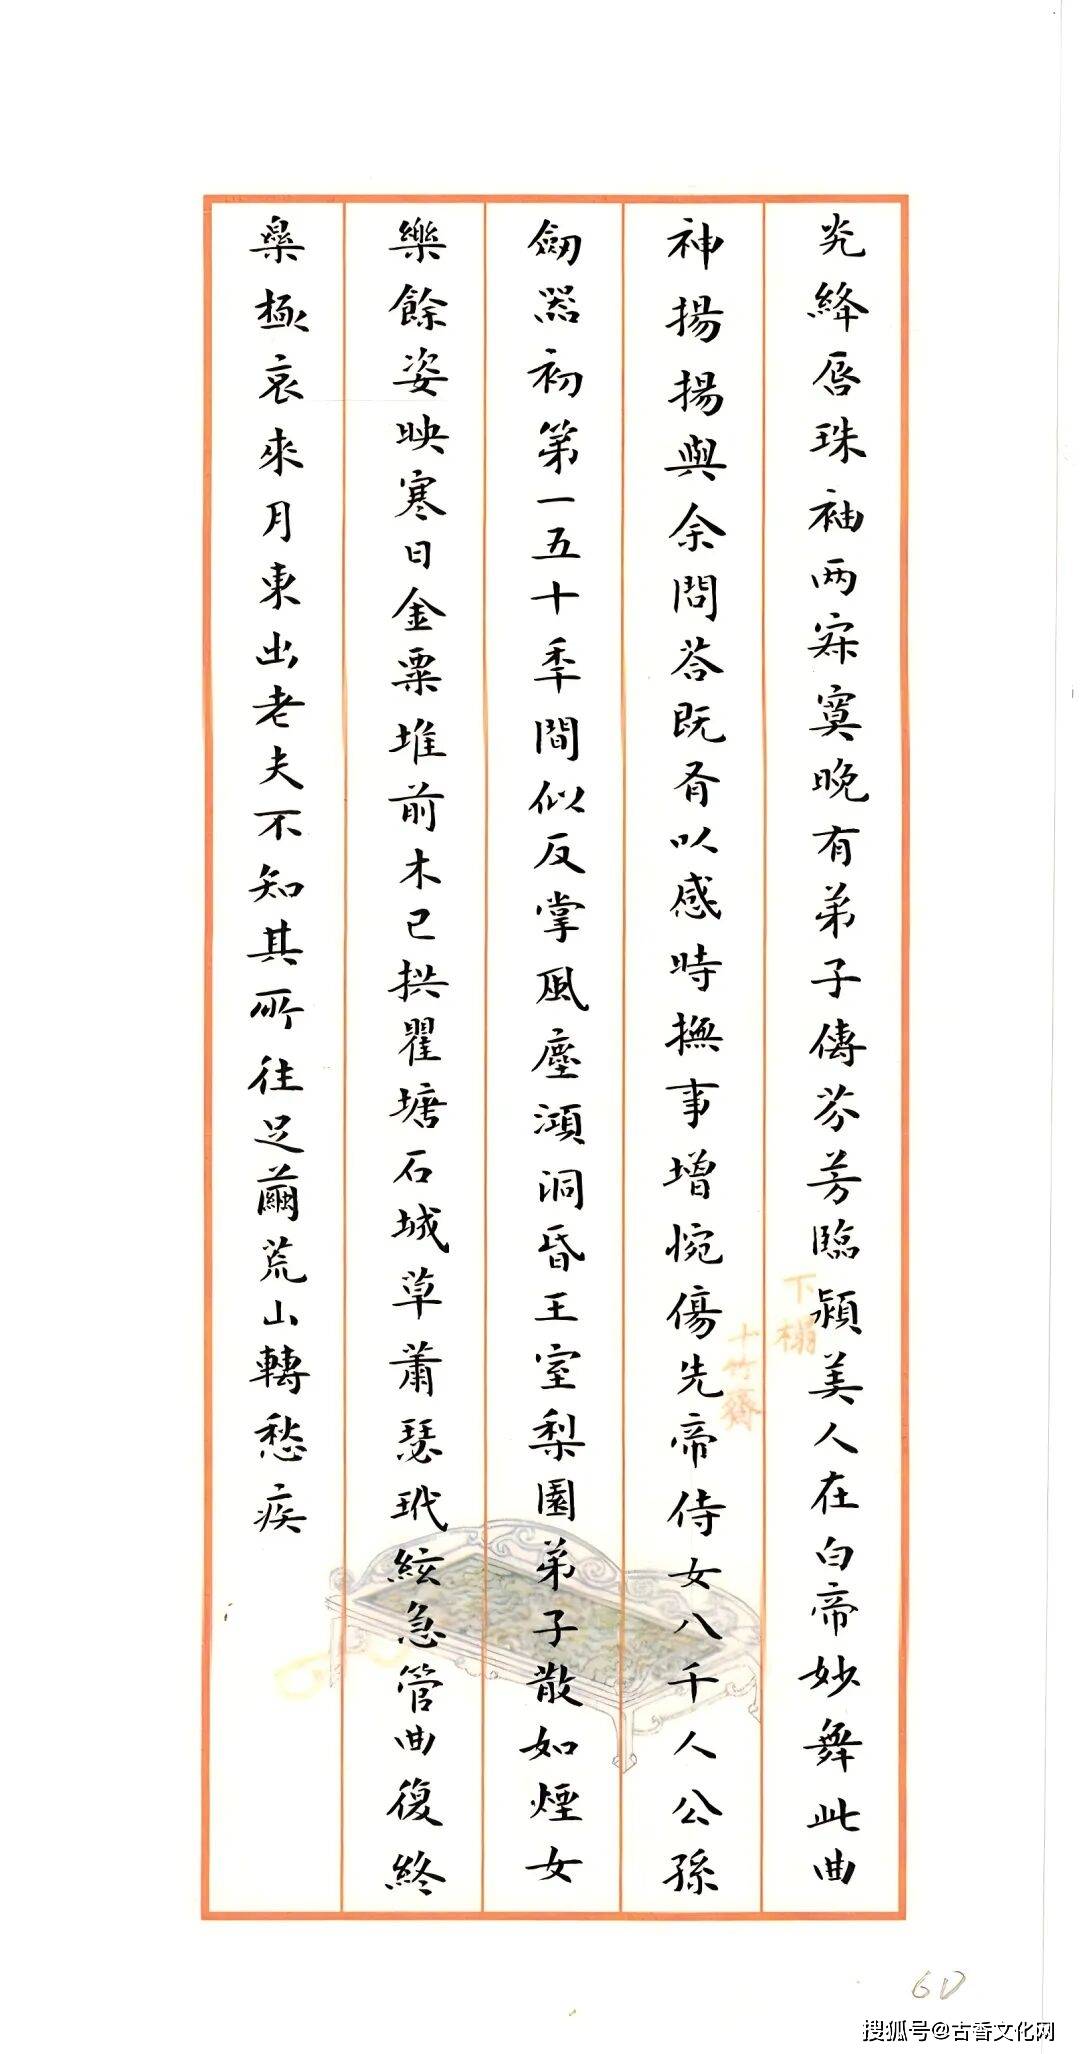 光絳唇珠袖两寂寞晚有弟子傳芬芳臨潁美人在白帝妙舞此曲
神揚揚與余問荅既有以感時撫事增惋傷先帝侍女八千人公孫
劒器初第一五十年間似反掌風塵澒洞昏王室梨園弟子散如煙女
樂餘姿映寒日金粟堆前木已拱瞿塘石城草蕭瑟玳絃急管曲復終
樂極哀來月東出老夫不知其所往足繭荒山轉愁疾
下榻
十竹齋
60
搜狐号@古香文化网